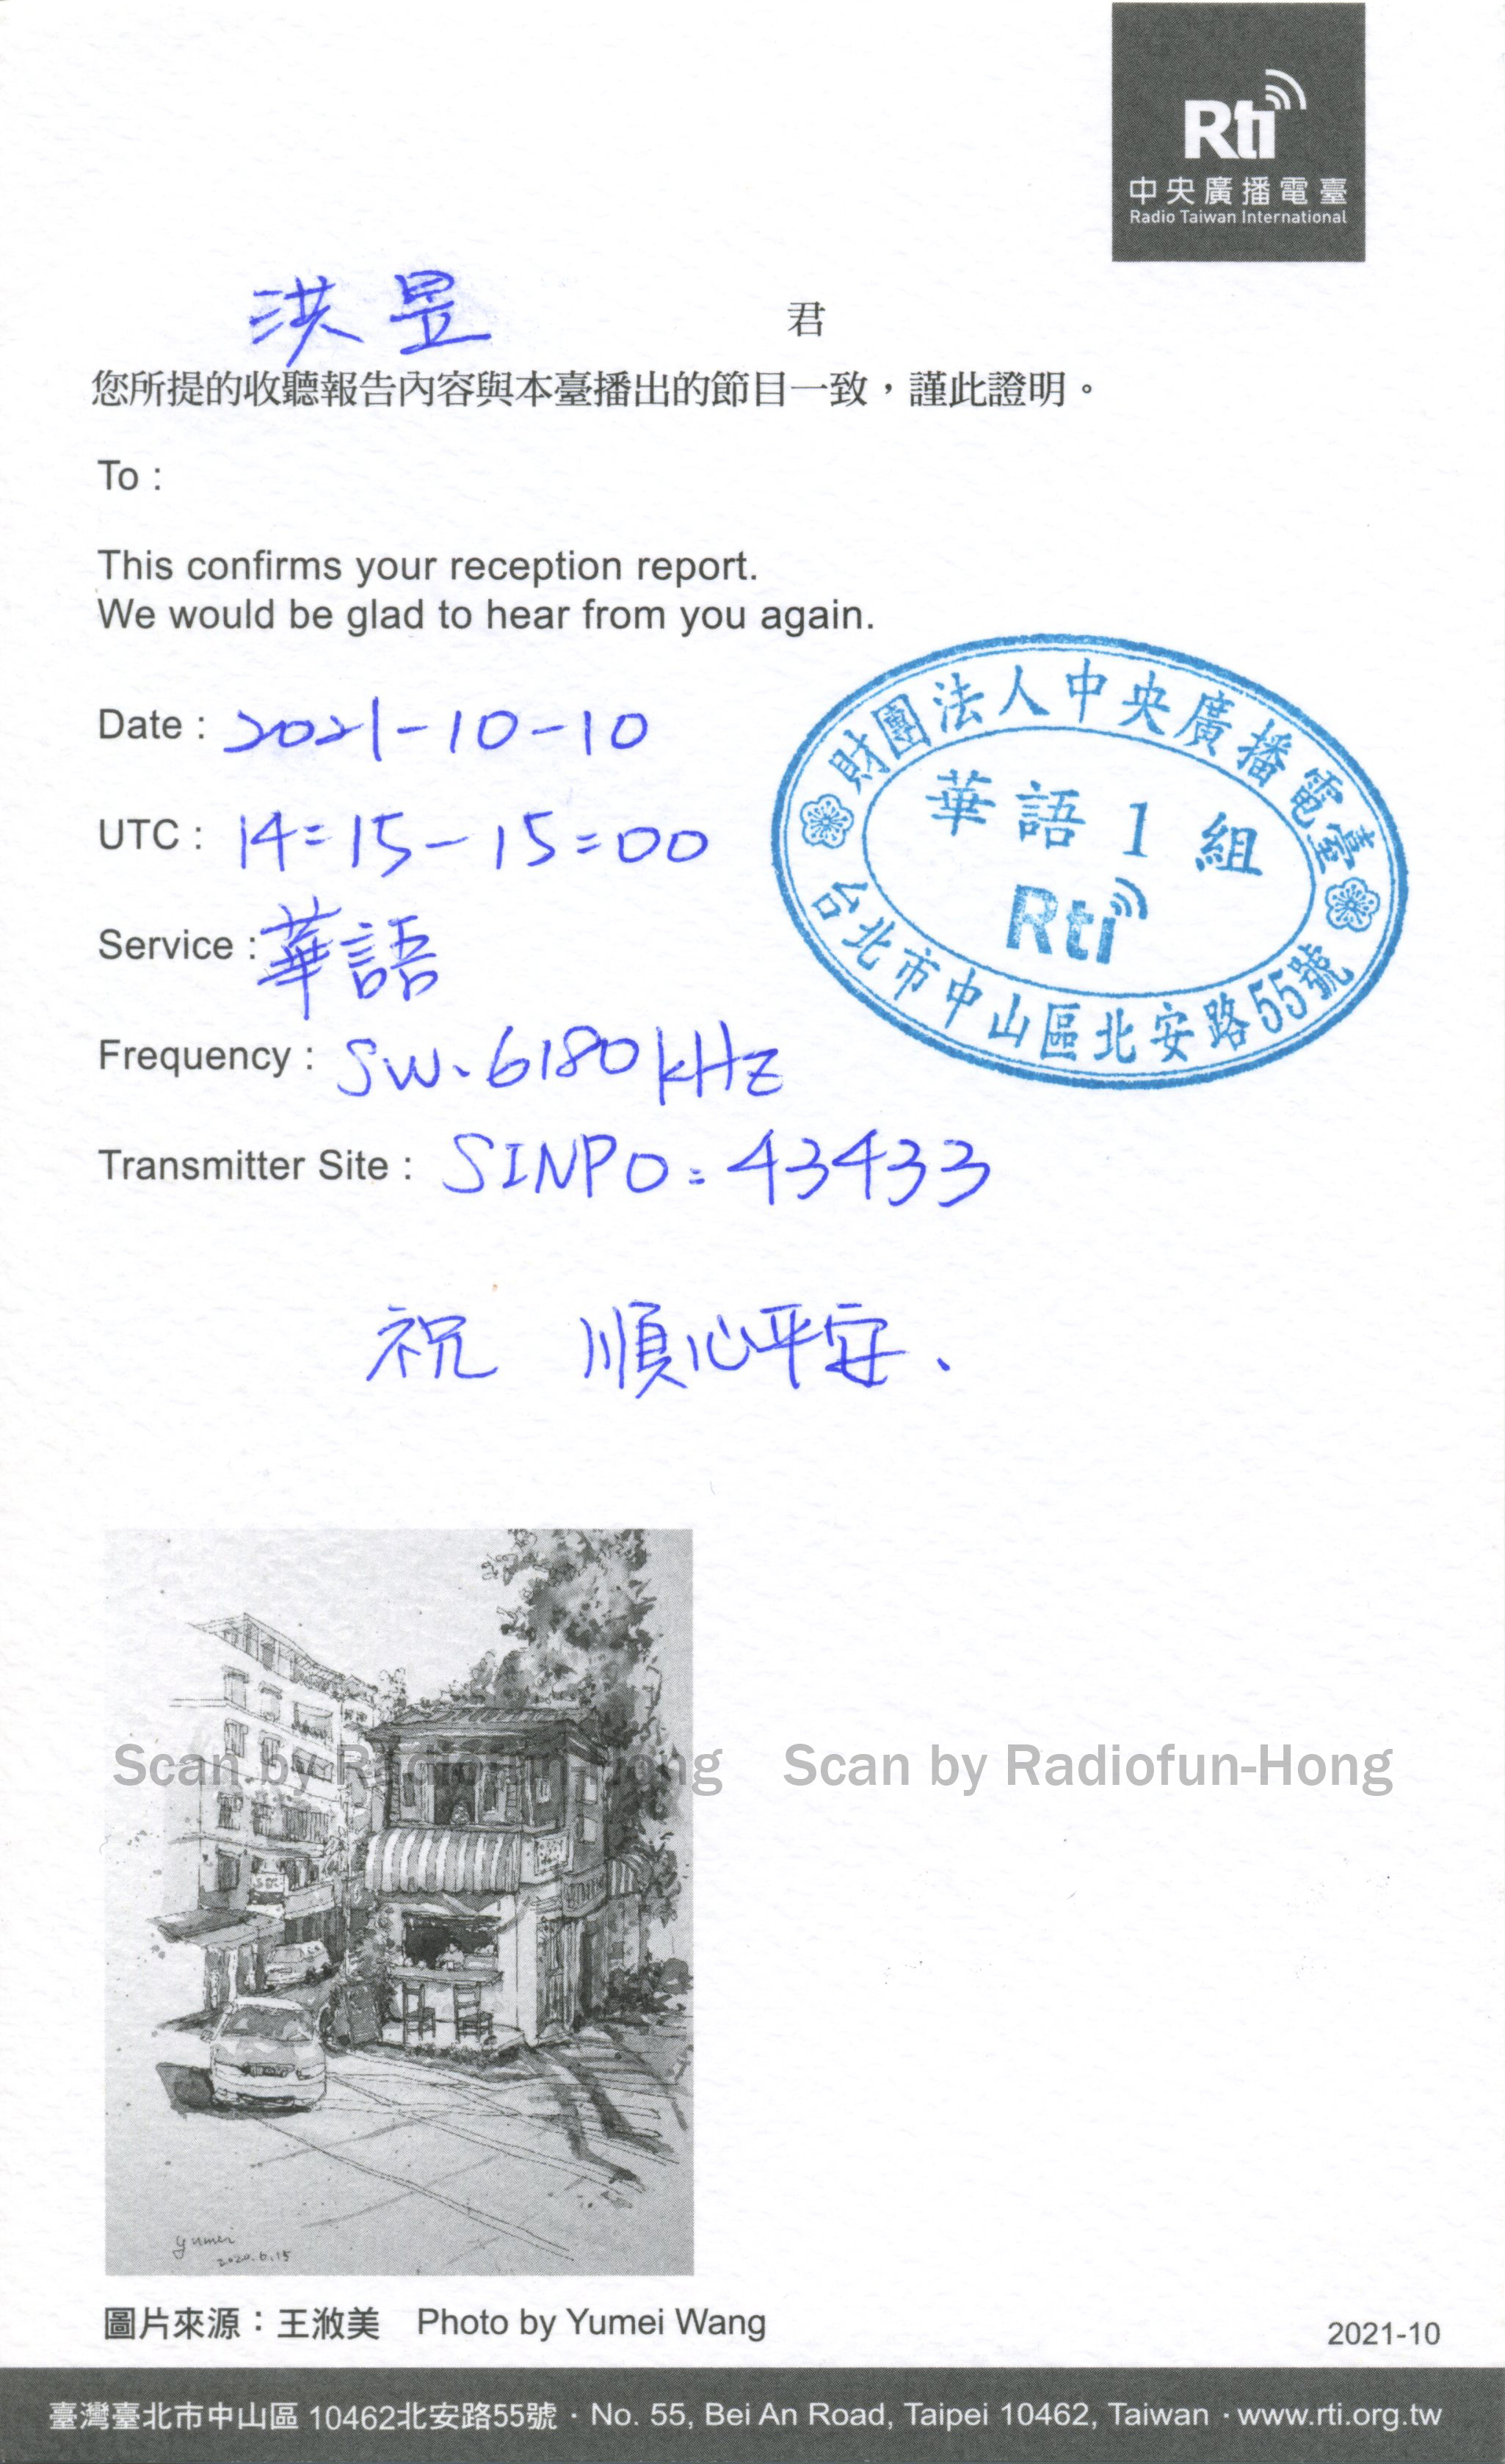 Rti
中央廣播電臺
Radio Taiwan International
洪昱 君
您所提的收聽報告內容與本臺播出的節目一致，謹此證明。
To :
This confirms your reception report.
We would be glad to hear from you again.
Date : 2021-10-10
UTC : 14:15-15:00
Service : 華語
Frequency : SW. 6180 kHz
Transmitter Site : SINPO : 43433
財團法人中央廣播電臺
華語1組
Rti
台北市中山區北安路55號
祝 順心平安、
Scan by Radiofun-Hong Scan by Radiofun-Hong
yumei
2020.6.15
圖片來源：王漵美 Photo by Yumei Wang
2021-10
臺灣臺北市中山區 10462北安路55號 · No. 55, Bei An Road, Taipei 10462, Taiwan · www.rti.org.tw